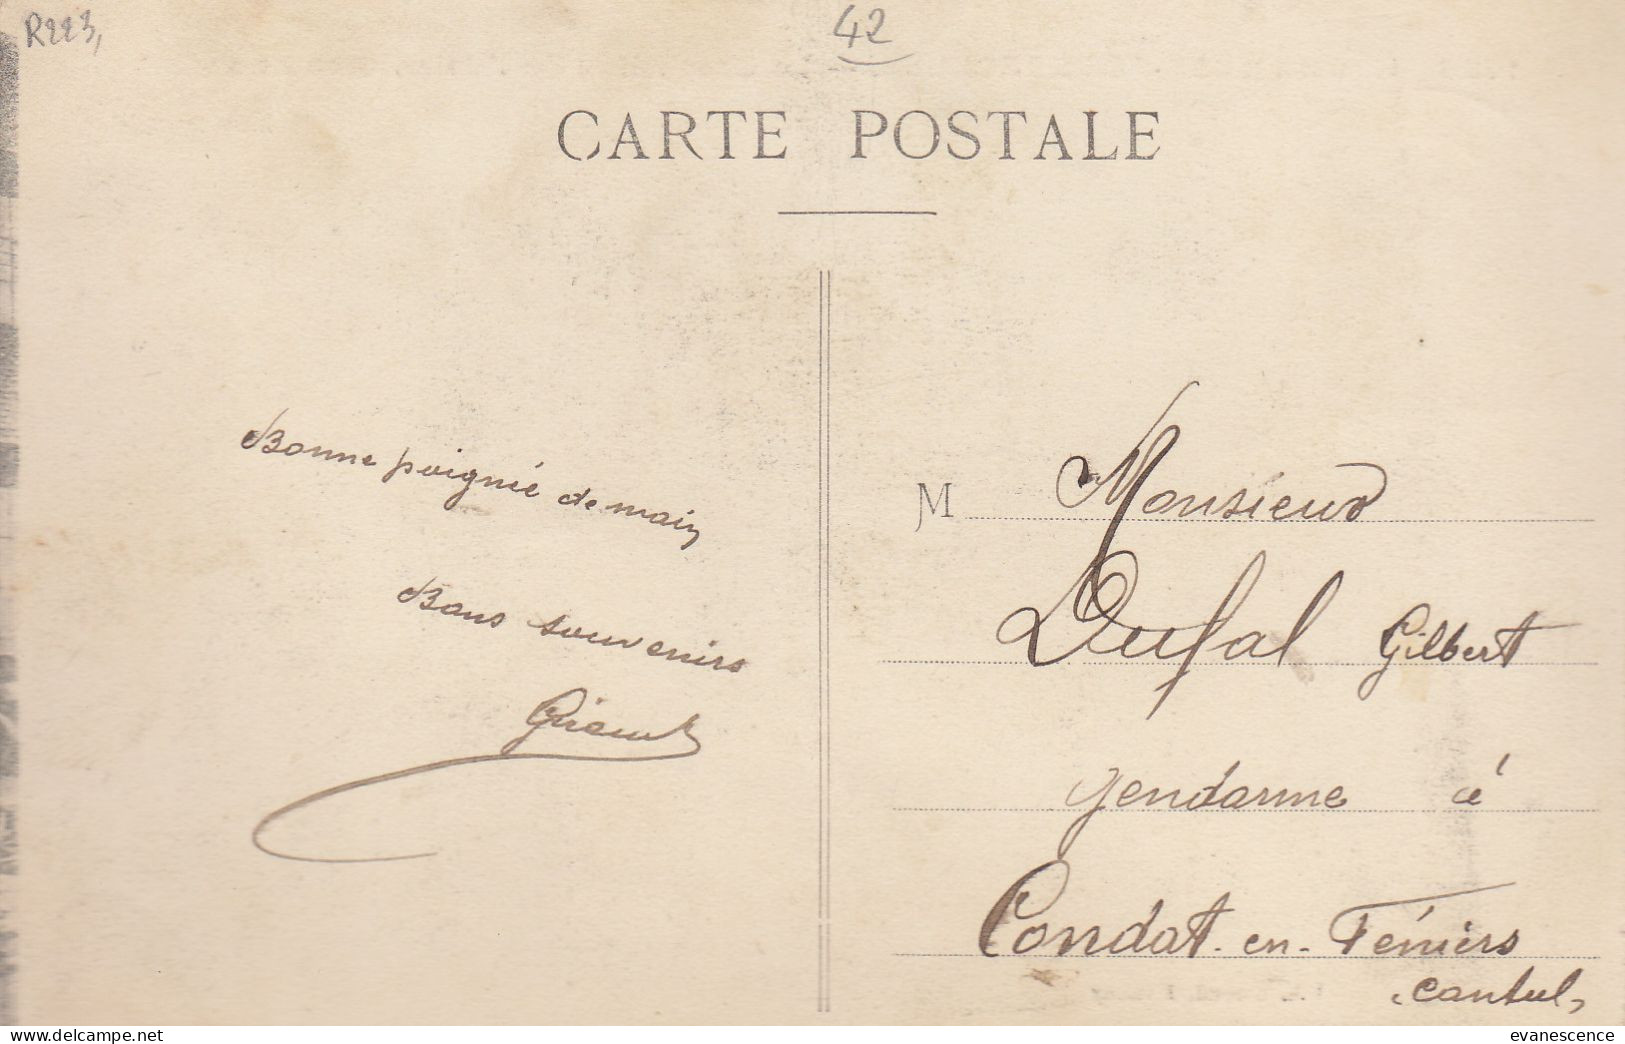 R223,
42
CARTE POSTALE
Bonne poignié de main
Bons souvenirs
M Monsieur
Dufal Gilbert
gendarme à
Condat-en-Féniers
Cantal
delcampe.net
evanescence